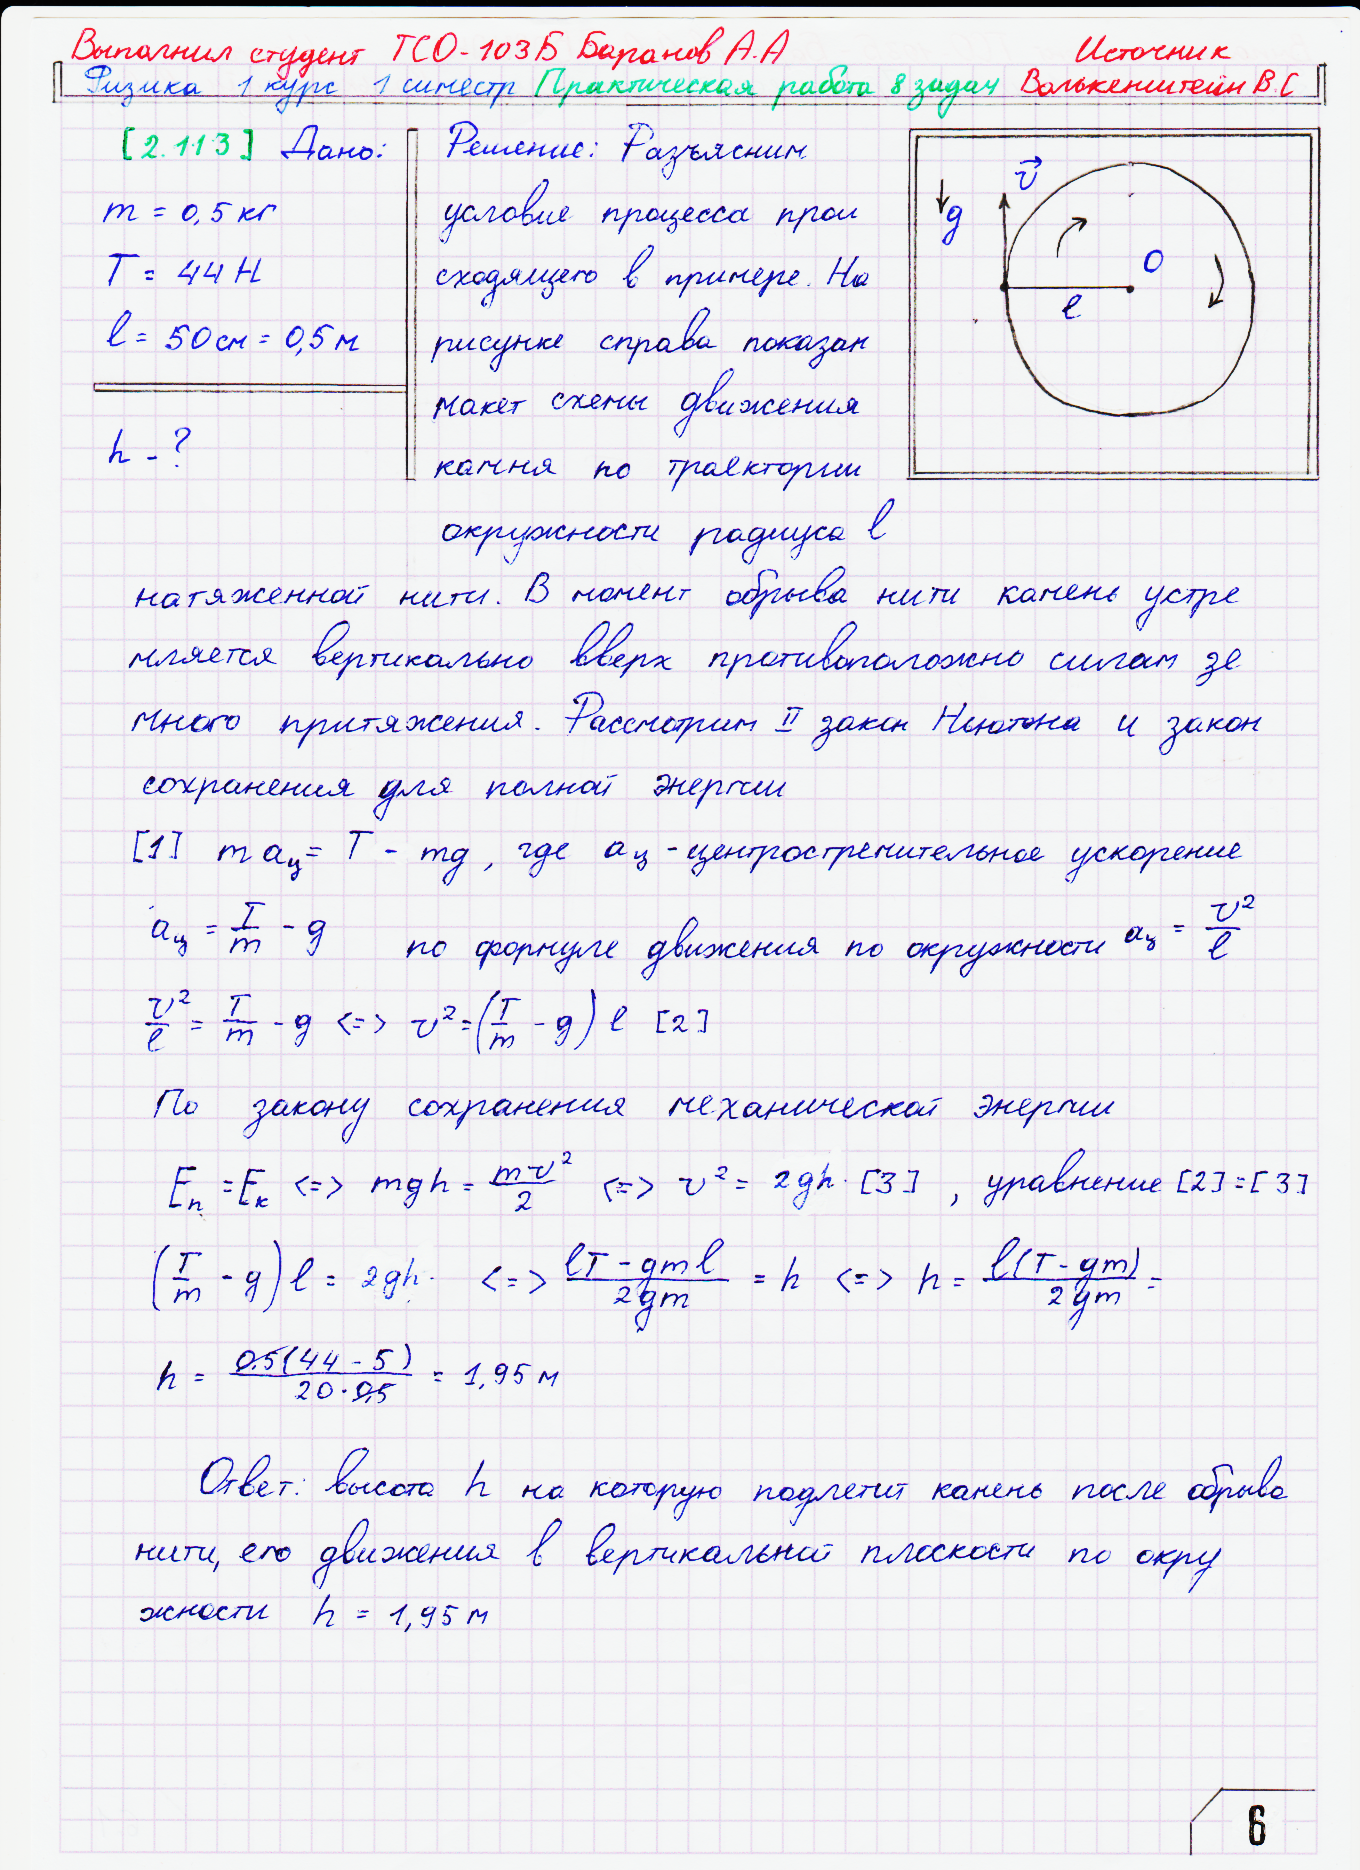 Выполнил студент ТСО-103Б Баранов А.А Источник
Физика 1 курс 1 симестр Практическая работа 8 задач Волькенштейн В.С
[2.113] Дано:
m = 0,5 кг
T = 44 Н
l = 50 см = 0,5 м
h - ?
Решение: Разъясним
условие процесса прои
сходящего в примере. На
рисунке справа показан
макет схемы движения
камня по траектории
окружности радиуса l
v⃗
g
O
l
натяженной нити. В момент обрыва нити камень устре
мляется вертикально вверх противоположно силам зе
много притяжения. Рассмотрим II закон Ньютона и закон
сохранения для полной энергии
[1] m aц = T - mg, где aц - центростремительное ускорение
aц = T/m - g по формуле движения по окружности aц = v²/l
v²/l = T/m - g <=> v² = (T/m - g) l [2]
По закону сохранения механической энергии
Eп = Eк <=> mgh = mv²/2 <=> v² = 2gh [3], уравнение [2] = [3]
(T/m - g) l = 2gh <=> (lT - gml)/(2gm) = h <=> h = l(T - gm)/(2gm) =
h = 0,5(44 - 5)/(20·0,5) = 1,95 м
Ответ: высота h на которую подлетит камень после обрыва
нити, его движения в вертикальной плоскости по окру
жности h = 1,95 м
6